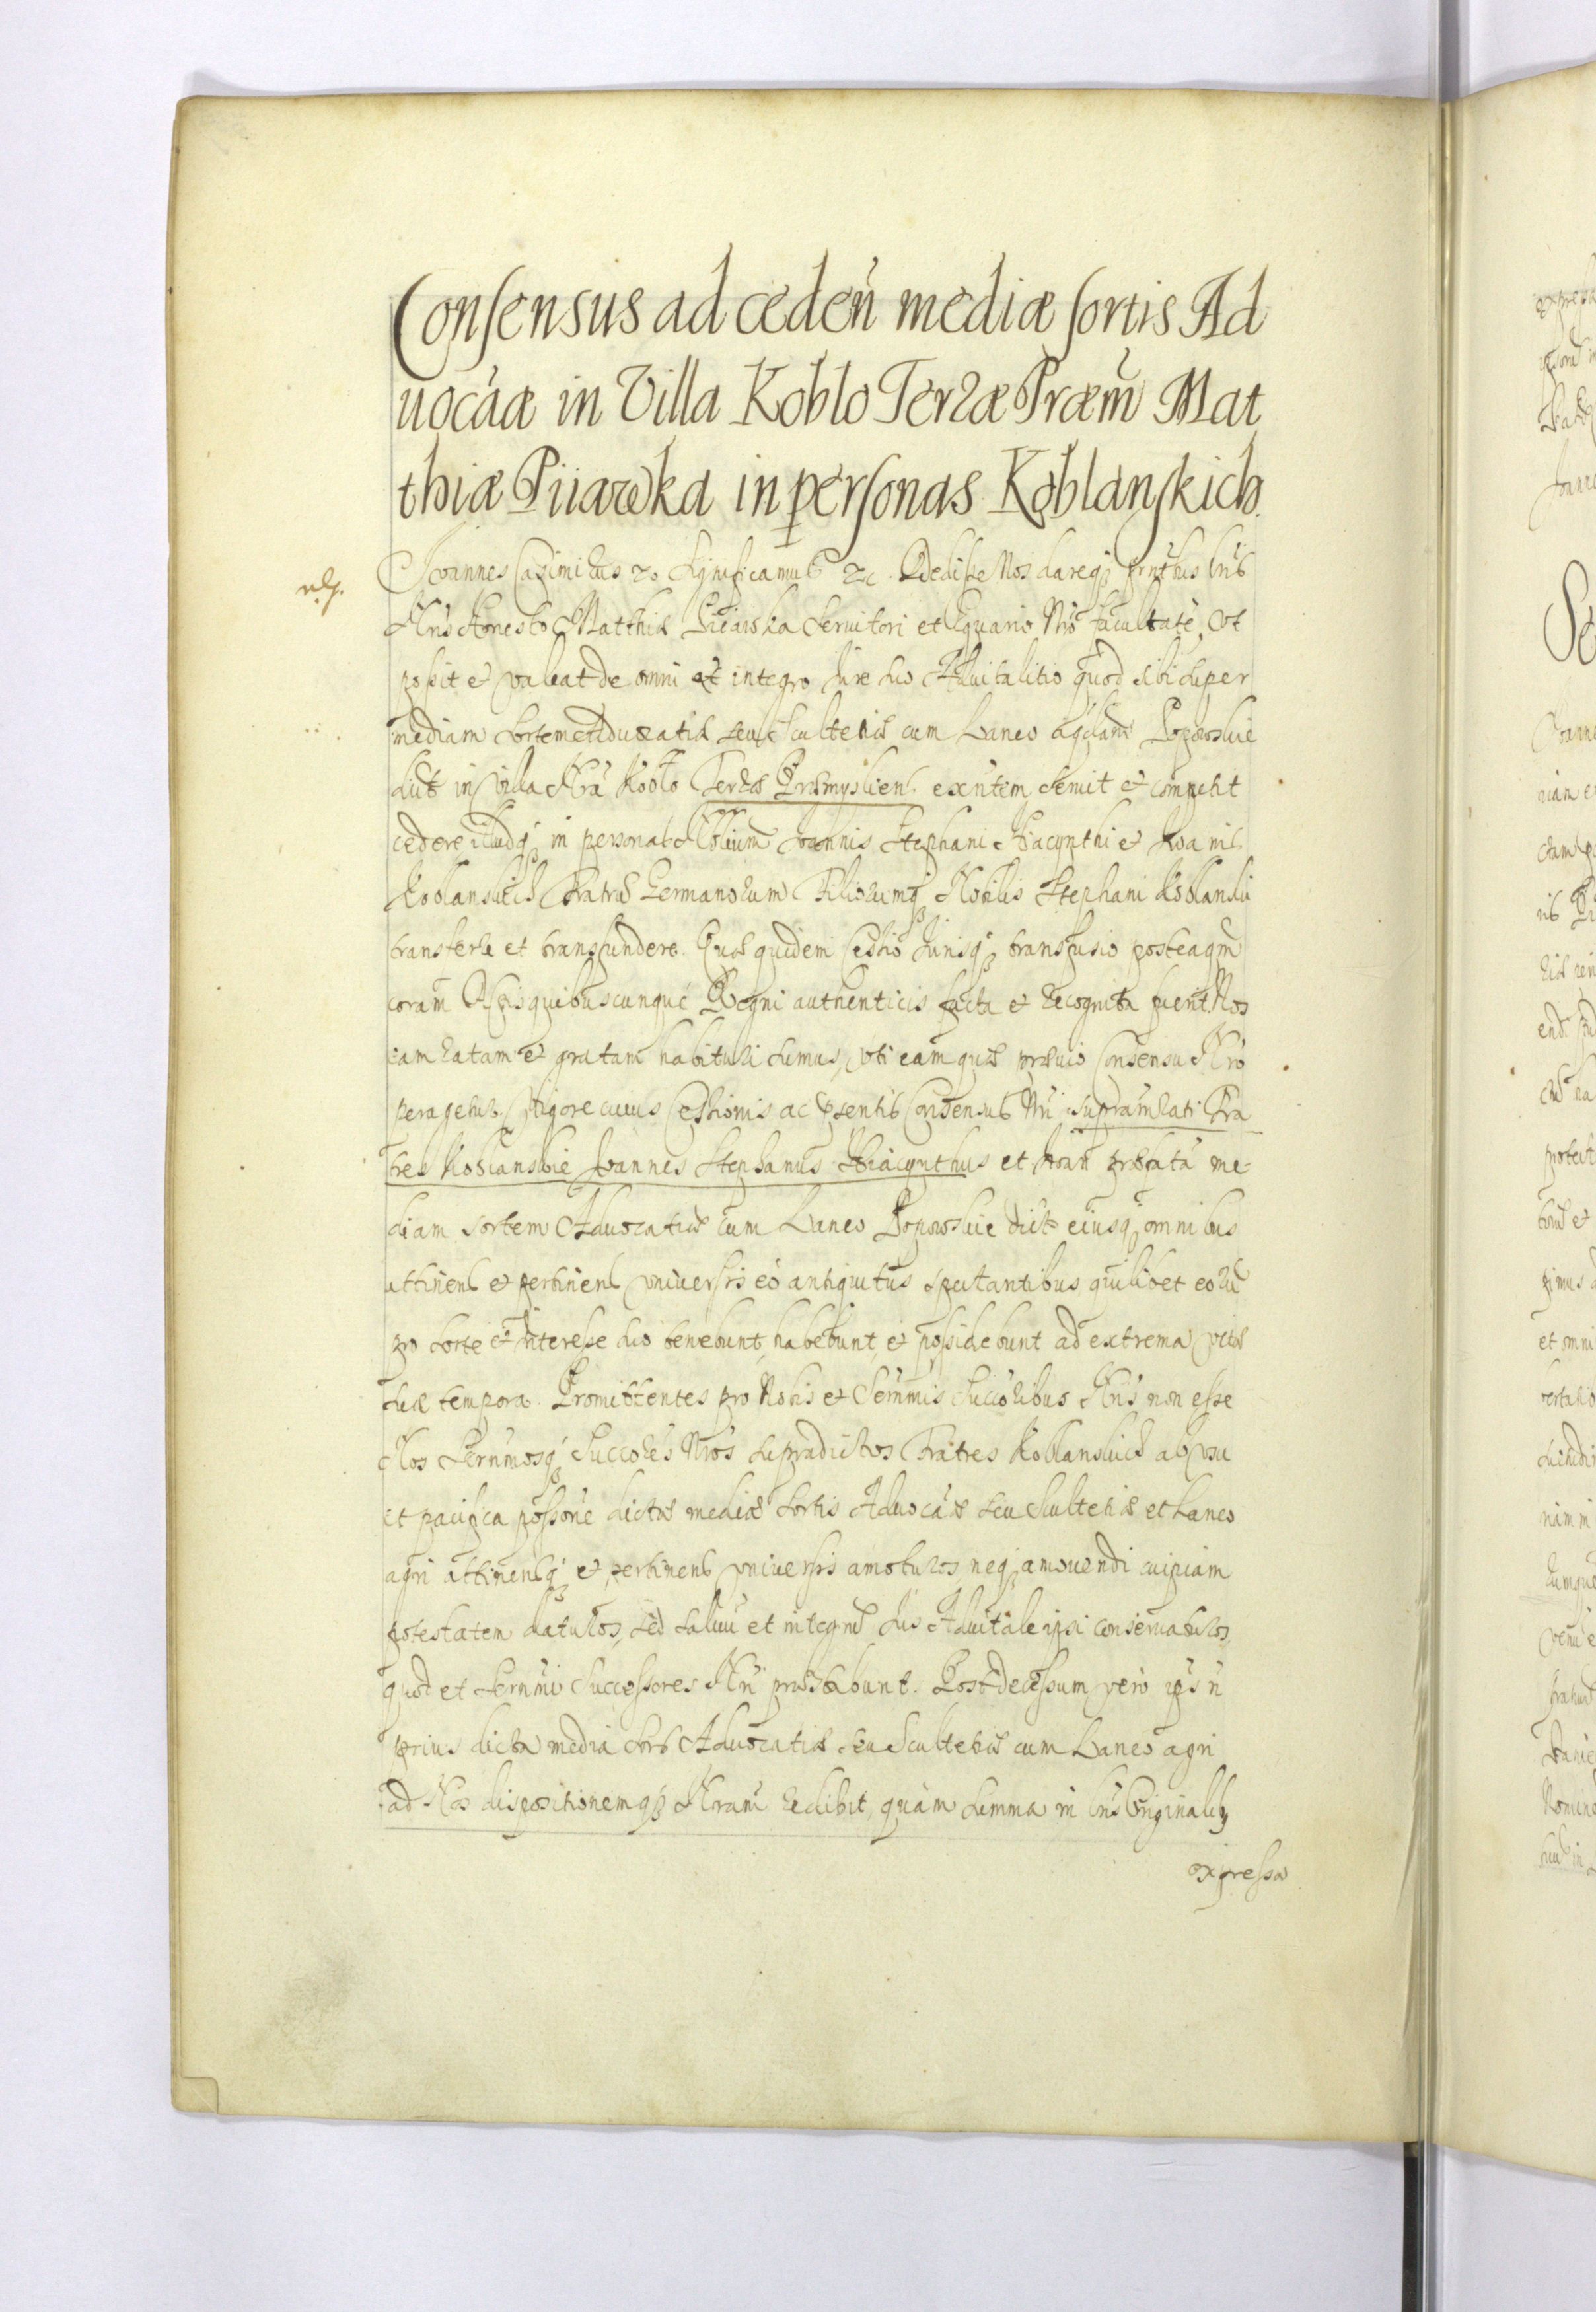 Consensus ad ceden̄ mediæ sortis Ad
uocãæ in Villa Koblo Terræ Præm̄ Mat
thiæ Piiawka in personas Koblanskich
Joannes Casimirus &c. Significamus &c. Dedisse Nos dareq; p̃ntibus Lr̃is
Nr̃is Honesto Matthiæ Piiawka Seruitori et Equario Nr̃o facultatẽ, Vt
possit et valeat de omni et integro Iure suo Aduitalitio quod sibi super
mediam sortem Aduocatiæ seu Scultetiæ cum Laneo Popowskie
dict̃ in Villa Nr̃a Koblo Terræ Præmysliens. exñtem seruit et competit
cedere illudq; in personas Nobilium Joannis Stephani Hiacynthi et Iwa nis
Koblanskich Fratrũ Germanorum Filiorumq; Nobilis Stephani Koblanski
transferre et transfundere. Quæ quidem Cessio Iurisq; transfusio posteaqm̃
coram Actis quibuscunque Regni authenticis facta et recognita fuerit Nos
eam ratam et gratam habituri sumus, vti eam quæ præuio Consensu Nr̃o
peragetur. Vigore cuius Cessionis ac p̃sentis Consensus Nr̃i supramlati Fra
tres Koblanskie Joannes Stephanus Hiacynthus et Iwan præfatã me
diam sortem Aduocatiæ cum Laneo Popowskie dict̃ eiusq; omnibus
attinen̄ et pertinen̄ vniuersis eò antiquitus spectantibus quilibet eorũ
pro sorte et Interesse suo tenebunt, habebunt, et possidebunt ad extrema vitæ
suæ tempora. Promittentes pro Nobis et Serm̃mis Succorĩbus Nr̃is non esse
Nos Sernmosq; Succorẽs Nr̃os supradictos Fratres Koblanskich ab vsu
et pacifica possoñe dictæ mediæ sortis Aduocãæ seu Scultetiæ et Laneo
agri attinen̄q; et pertinen̄ vniuersis amoturos neq; amouendi cuipiam
potestatem daturos, sed saluũ et integrũ Ius Aduitale ipsi conseruaturos,
quod et Sernmi Successores Nr̃i præstabunt. Post decessum vero ipsor̃
prius dicta media sors Aduocatiæ seu Scultetiæ cum Laneo agri
ad Nos dispositionemq; Nram̃ redibit, quàm summa in Lr̃is Originalib9
expressa